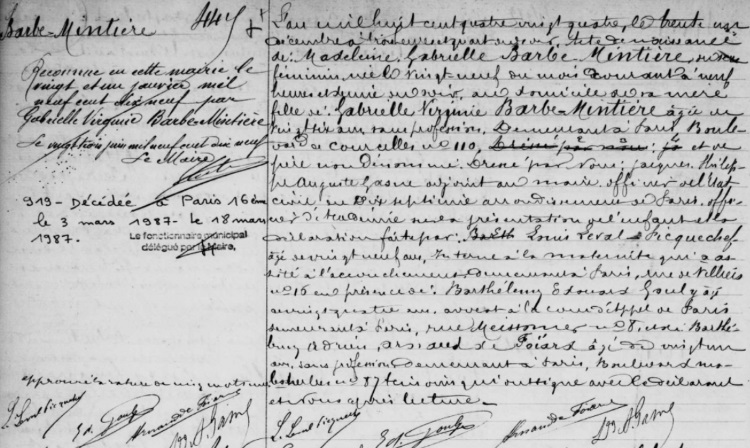 Barbe-Mintière
Reconnue en cette mairie le
vingt et un janvier mil
neuf cent dix neuf par
Gabrielle Virginie Barbe-Mintière
Le vingt trois juin mil neuf cent dix neuf
Le Maire
919 - Décédée à Paris 16ème
le 3 mars 1987 - le 18 mars
1987.
Le fonctionnaire municipal
délégué par le Maire,
L'an mil huit cent quatre vingt quatre, le trente un
décembre à trois heures et quart du soir. Acte de naissance
de Madeleine Gabrielle Barbe-Mintière, du sexe
féminin, né le vingt neuf du mois courant à neuf
heures et demie du soir, au domicile de sa mère
fille de Gabrielle Virginie Barbe-Mintière âgée de
vingt six ans sans profession. Demeurant à Paris, Boule-
vard de Courcelles nº 110, et de
père non dénommé. Dressé par nous, Jacques Philip-
pe Auguste adjoint au maire, officier de l'Etat
civil du Dix septième arrondissement de Paris.
sur la présentation de l'enfant et la
déclaration faite par Louis Leval Picquechef
âgé de vingt neuf ans, Interne à la maternité qui a as-
sisté à l'accouchement, demeurant à Paris, rue de Villiers
nº 16 en présence de: Barthélemy Edouard Gouly âgé
de vingt quatre ans, avocat à la cour d'Appel de Paris
demeurant à Paris, rue Meissonier nº 8, et de Barthé-
lemy Adrien, Armand de Foïard âgé de vingt un
ans, sans profession demeurant à Paris, Boulevard Ma-
lesherbes nº 87 qui ont signé avec le déclarant
et nous après lecture.
approuvé la rature de cinq mots nuls